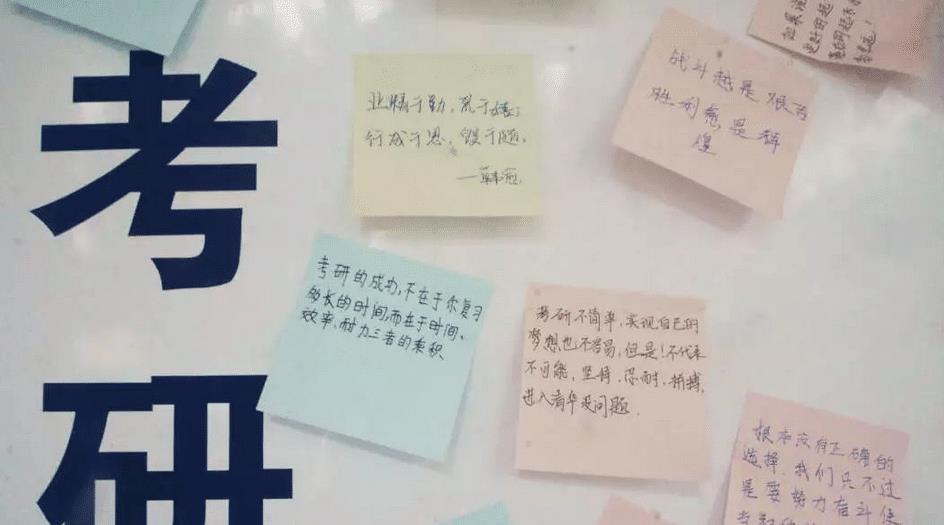 考研
业精于勤,荒于嬉;
行成于思,毁于随。
——韩愈
战斗越是艰苦
胜利愈是辉
煌
如果说
考研的成功,不在于你复习
多长的时间,而在于时间、
效率、耐力三者的乘积
考研不简单,实现自己的
梦想也不容易,但是!不代表
不可能,坚持、忍耐、拼搏,
进入清华没问题.
根本没有正确的
选择,我们只不过
是要努力奋斗使